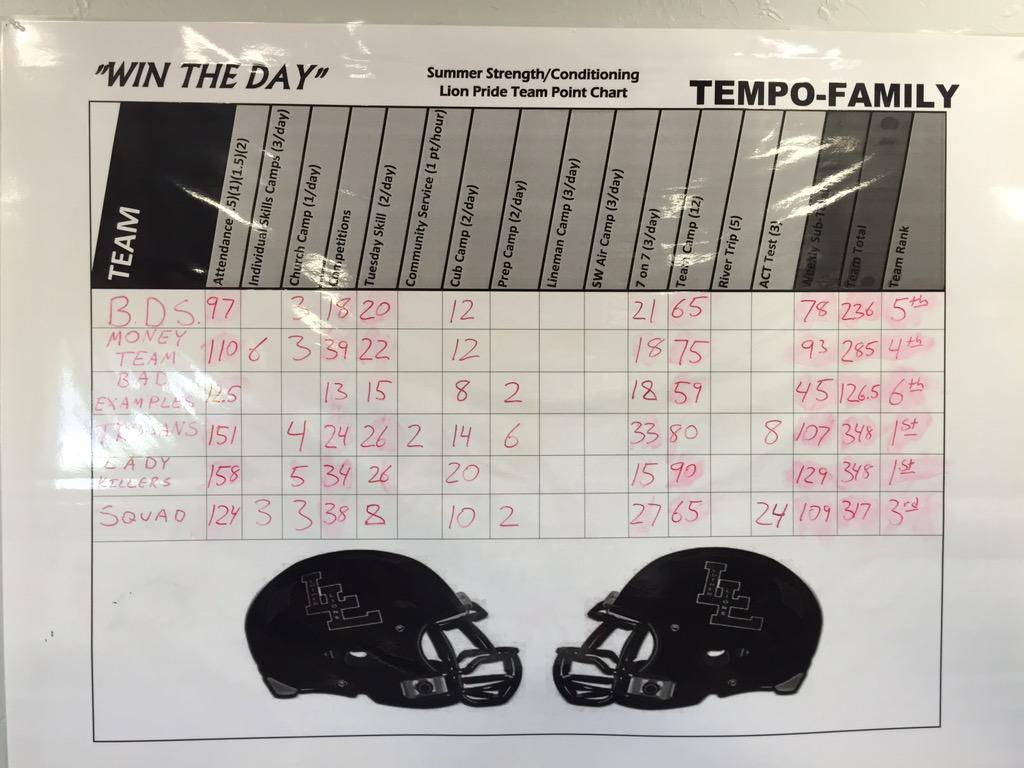 "WIN THE DAY"
Summer Strength/Conditioning
Lion Pride Team Point Chart
TEMPO-FAMILY
TEAM
Attendance .5)(1)(1.5)(2)
Individual Skills Camps (3/day)
Church Camp (1/day)
Competitions
Tuesday Skill (2/day)
Community Service (1 pt/hour)
Cub Camp (2/day)
Prep Camp (2/day)
Lineman Camp (3/day)
SW Air Camp (3/day)
7 on 7 (3/day)
Team Camp (12)
River Trip (5)
ACT Test (3)
Weekly
Team Total
Team Rank
B.D.S. 97 3 18 20 12 21 65 78 236 5th
MONEY TEAM 110 6 3 39 22 12 18 75 93 285 4th
BAD EXAMPLES 13 15 8 2 18 59 45 126.5 6th
TROJANS 151 4 24 26 2 14 6 33 80 8 107 348 1st
LADY KILLERS 158 5 34 26 20 15 90 129 348 1st
SQUAD 124 3 3 38 8 10 2 27 65 24 109 317 3rd